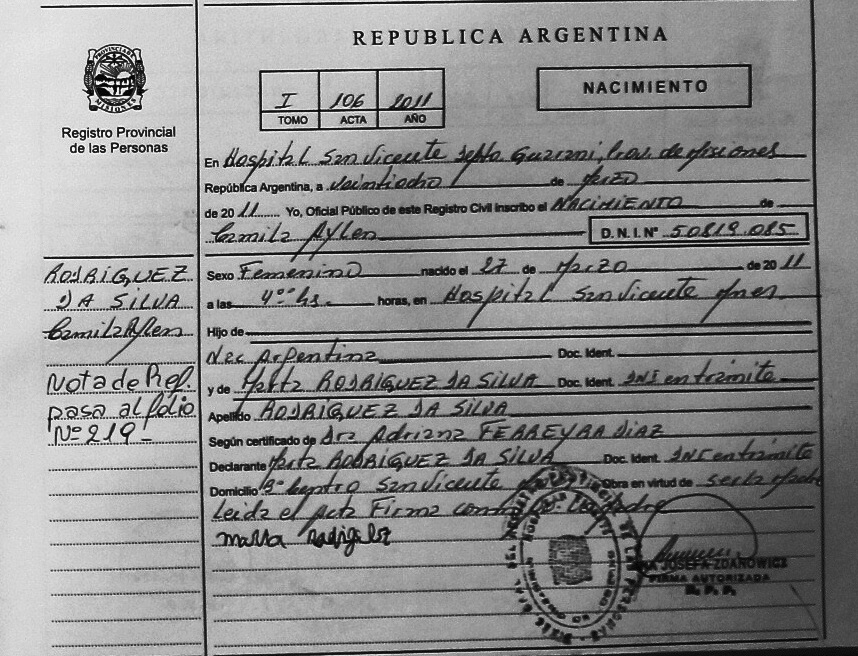 PROVINCIA DE MISIONES
Registro Provincial
de las Personas
REPUBLICA ARGENTINA
I 106 2011
TOMO ACTA AÑO
NACIMIENTO
En Hospital San Vicente Depto Guarani, Prov. de Misiones
República Argentina, a de Marzo
de 2011 Yo, Oficial Público de este Registro Civil inscribo el NACIMIENTO de
Camila Aylen D.N.I. Nº 50819.085
Sexo Femenino nacido el 27 de Marzo de 2011
a las 4ºº hs. horas, en Hospital San Vicente Mnes
Hijo de
Nac Argentina Doc. Ident.
y de Marta RODRIGUEZ DA SILVA Doc. Ident. DNI en trámite
Apellido RODRIGUEZ DA SILVA
Según certificado de Dra Adriana FERREYRA DIAZ
Declarante Marta RODRIGUEZ DA SILVA Doc. Ident. DNI en trámite
Domicilio Bº Centro San Vicente Obra en virtud de ser la Madre
Leida el acta Firma
RODRIGUEZ
DA SILVA
Camila Aylen
Nota de Ref.
pasa al folio
Nº 219-
JOSEFA ZDANOWICZ
FIRMA AUTORIZADA
R. P. P.